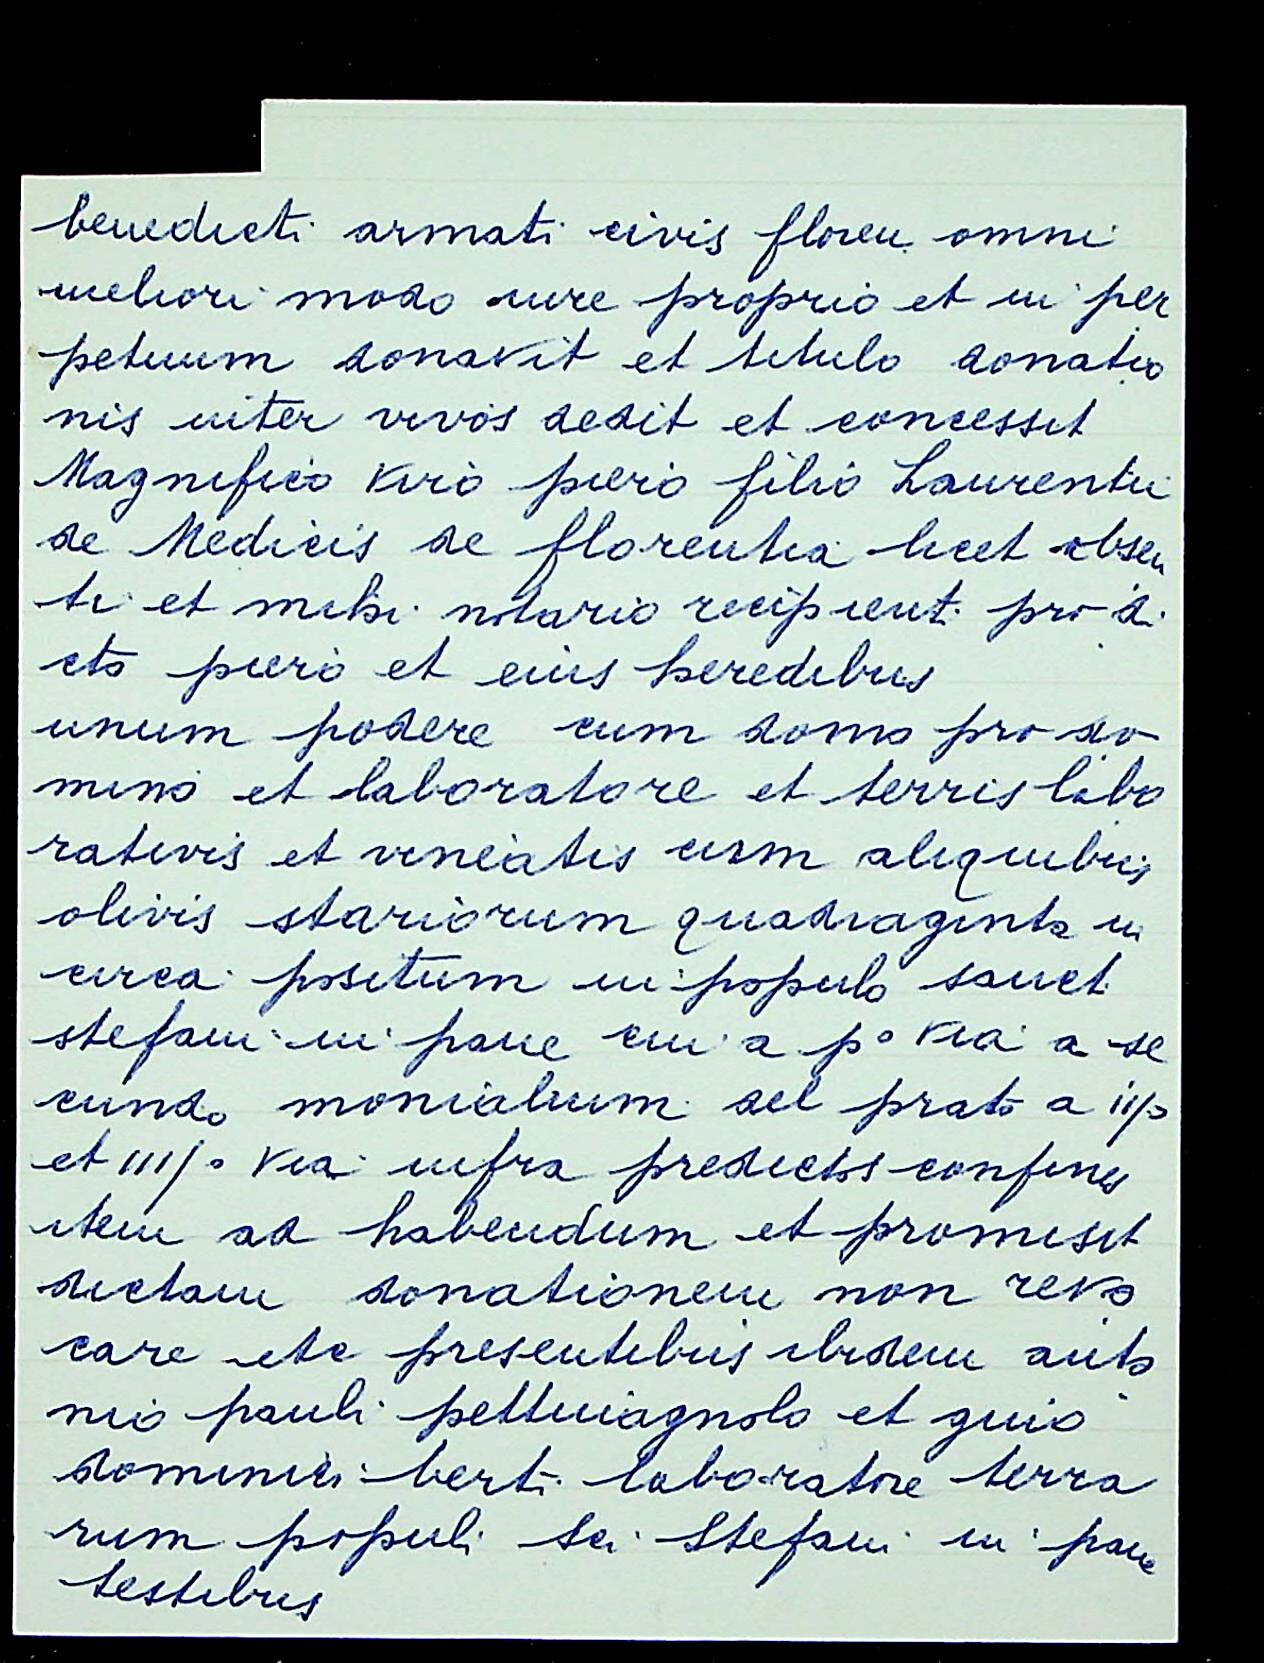 benedicti armati civis floren. omni
meliori modo iure proprio et in per
petuum donavit et titulo donatio
nis inter vivos dedit et concessit
Magnifico viro piero filio Laurentii
de Medicis de florentia licet absen
ti et mihi notario recipient. pro di
cto piero et eius heredibus
unum podere cum domo pro do
mino et laboratore et terris labo
rativis et vineatis cum aliquibus
olivis stariorum quadraginta in
circa positum in populo sanct.
stefani in pane cui a pº via a se
cundo monialium del prato a ii/o
et III/o via infra predictos confines
item ad habendum et promisit
dictam donationem non revo
care etc presentibus ibidem anto
nio pauli pettuiagnolo et guio
dominici berti laboratore terra
rum populi sci Stefani in pane
testibus